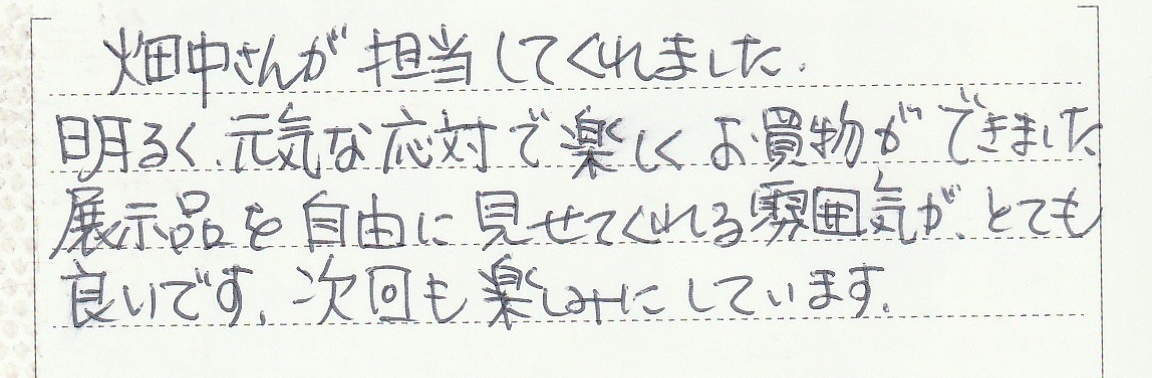 畑中さんが担当してくれました.
明るく、元気な応対で楽しくお買物ができました
展示品を自由に見せてくれる雰囲気が、とても
良いです。次回も楽しみにしています。